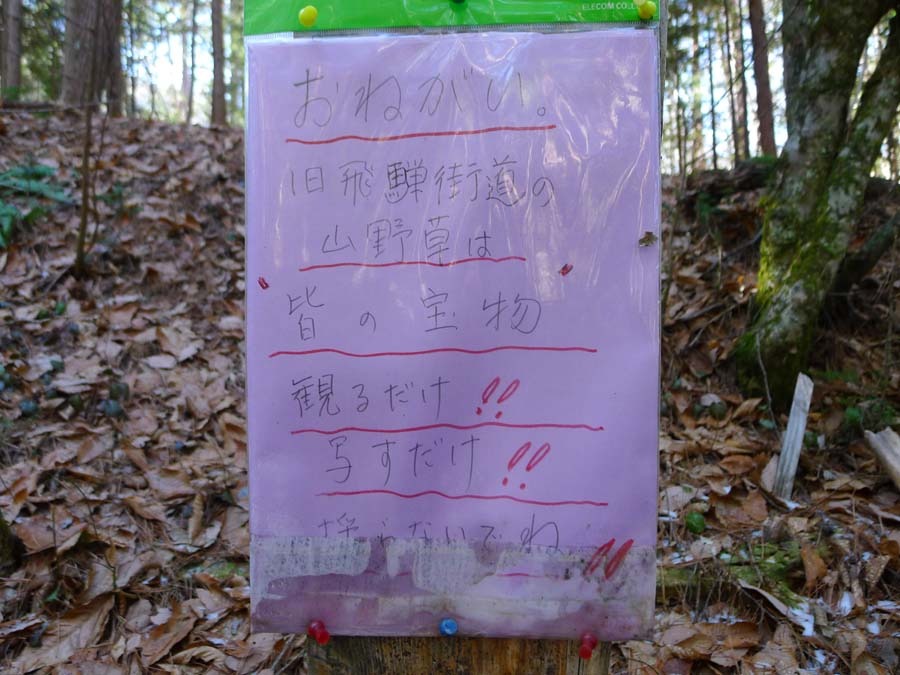 ELECOM CO.,L
おねがい。
旧飛騨街道の
山野草は
皆の宝物
観るだけ!!
写すだけ!!
採らないでね!!